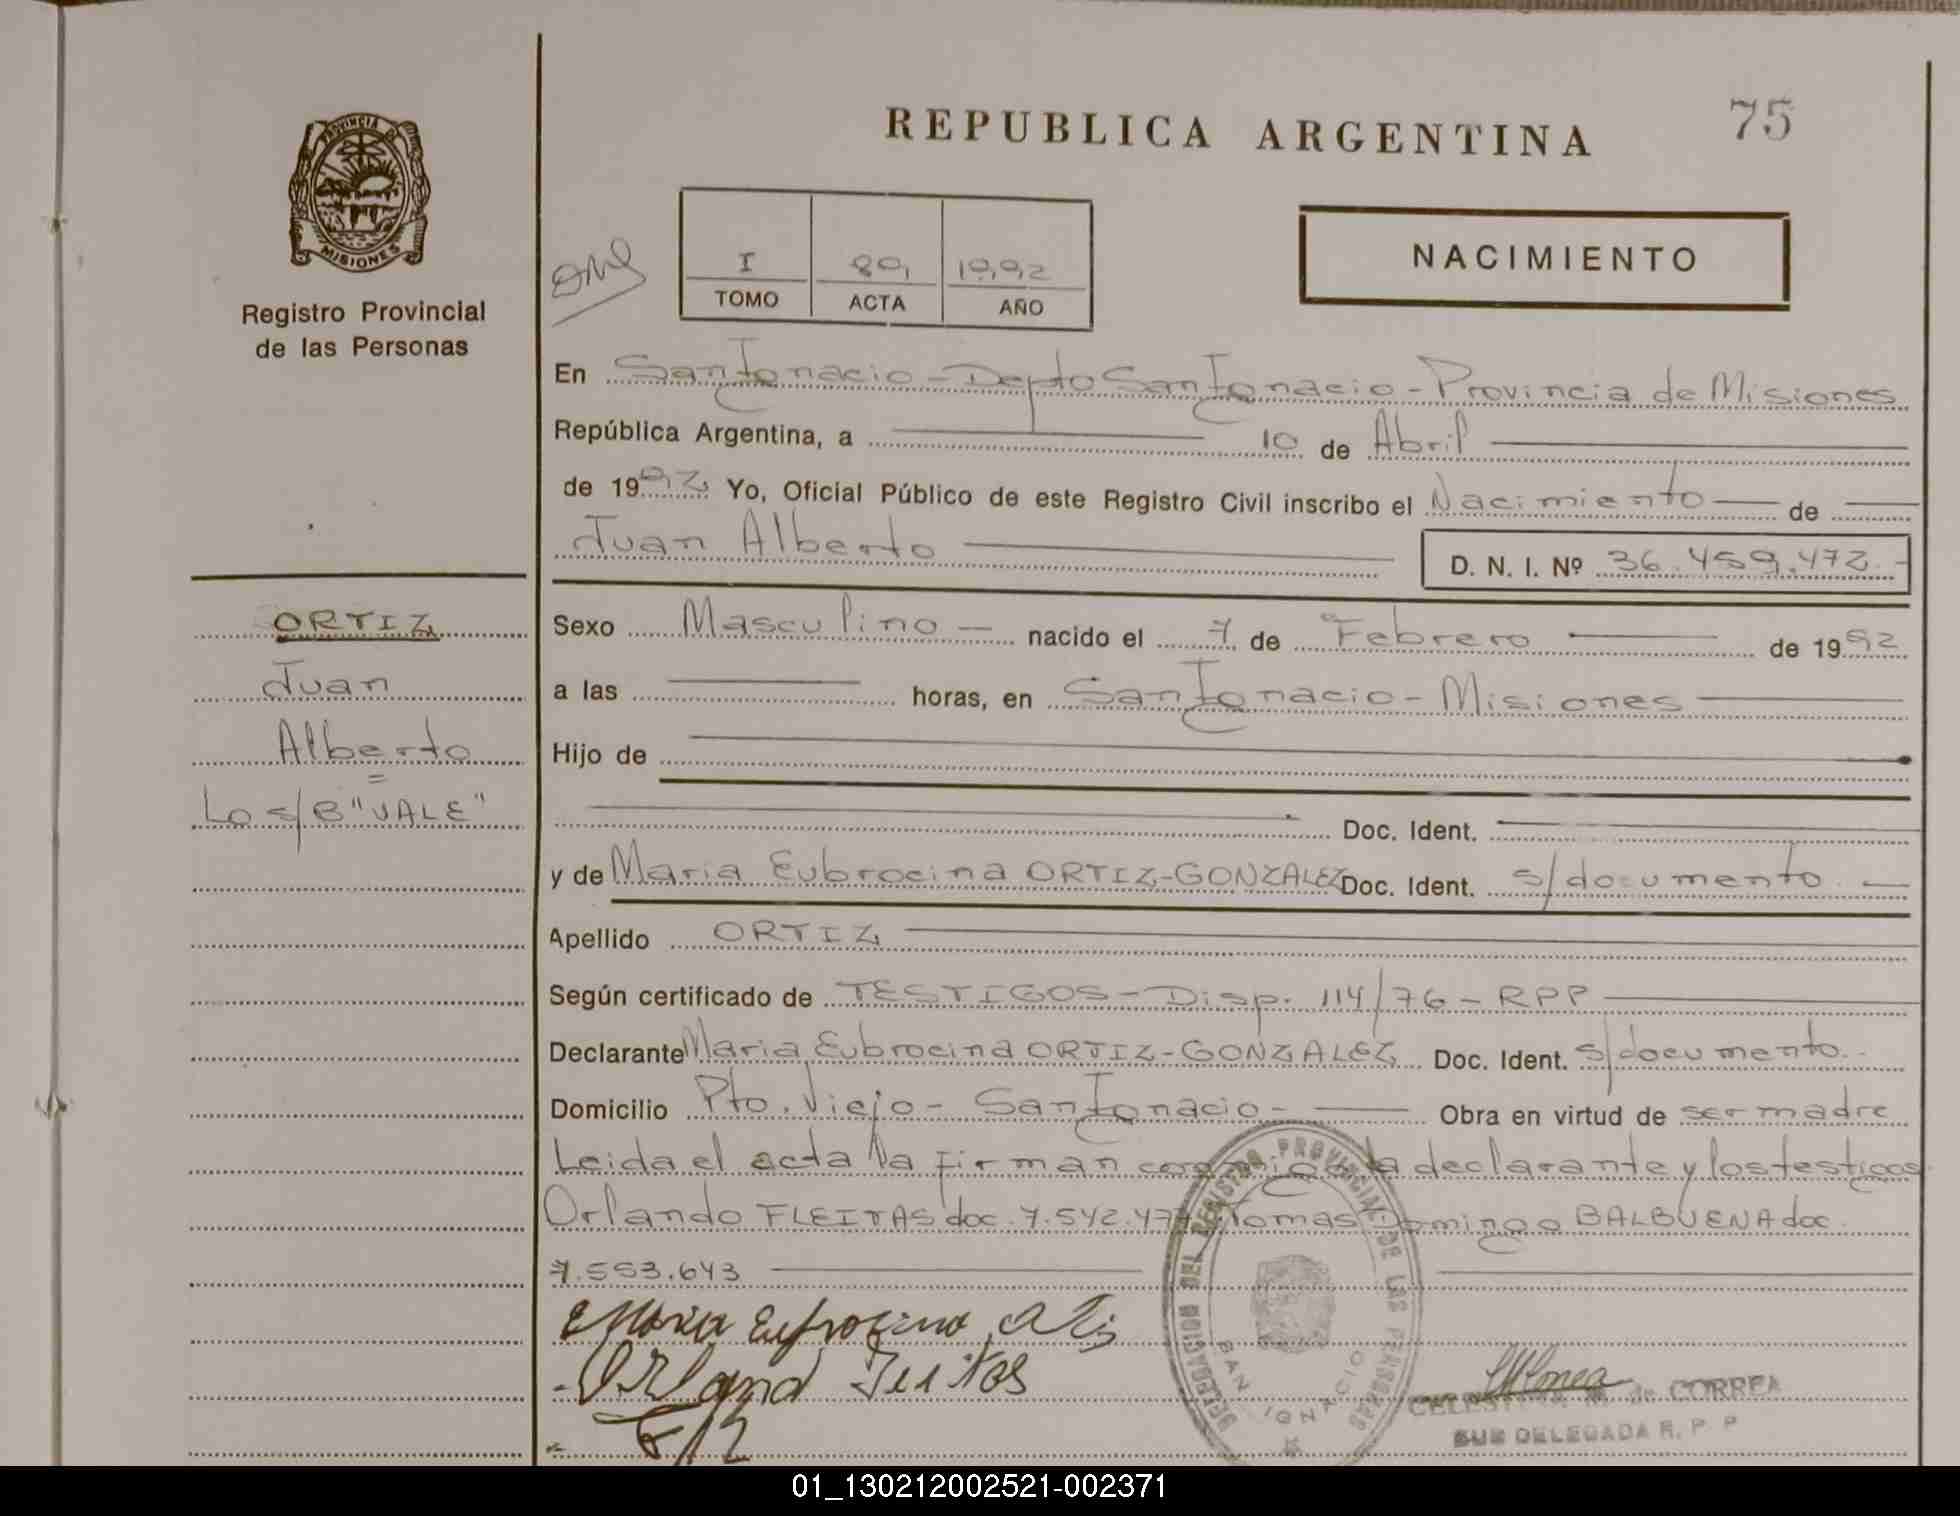 REPUBLICA ARGENTINA
75
PROVINCIA DE
MISIONES
Registro Provincial
de las Personas
I
80,
1992
TOMO
ACTA
AÑO
NACIMIENTO
En San Ignacio - Depto San Ignacio - Provincia de Misiones
República Argentina, a 10 de Abril
de 1992, Yo, Oficial Público de este Registro Civil inscribo el Nacimiento de
Juan Alberto D. N. I. Nº 36.459.472.-
ORTIZ
Juan
Alberto
=
Lo s/B "VALE"
Sexo Masculino - nacido el 7 de Febrero de 1992
a las horas, en San Ignacio - Misiones
Hijo de
Doc. Ident.
y de Maria Eubrocina ORTIZ-GONZALEZ Doc. Ident. s/documento.
Apellido ORTIZ
Según certificado de TESTIGOS - Disp. 114/76 - RPP
Declarante Maria Eubrocina ORTIZ-GONZALEZ Doc. Ident. s/documento.
Domicilio Pto. Viejo - San Ignacio - Obra en virtud de ser madre
Leida el acta la firman conmigo la declarante y los testigos
Orlando FLEITAS doc. 7.542.477 Tomas Domingo BALBUENA doc.
7.553.643
Maria Eufrocina
Orland
DELEGACION DEL REGISTRO PROVINCIAL DE LAS PERSONAS
SAN IGNACIO
CELESTINA M. de CORREA
SUB DELEGADA R. P. P
01_130212002521-002371